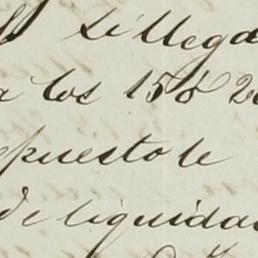 Si llega
a los 15 ó 2
puesto le
de liquida